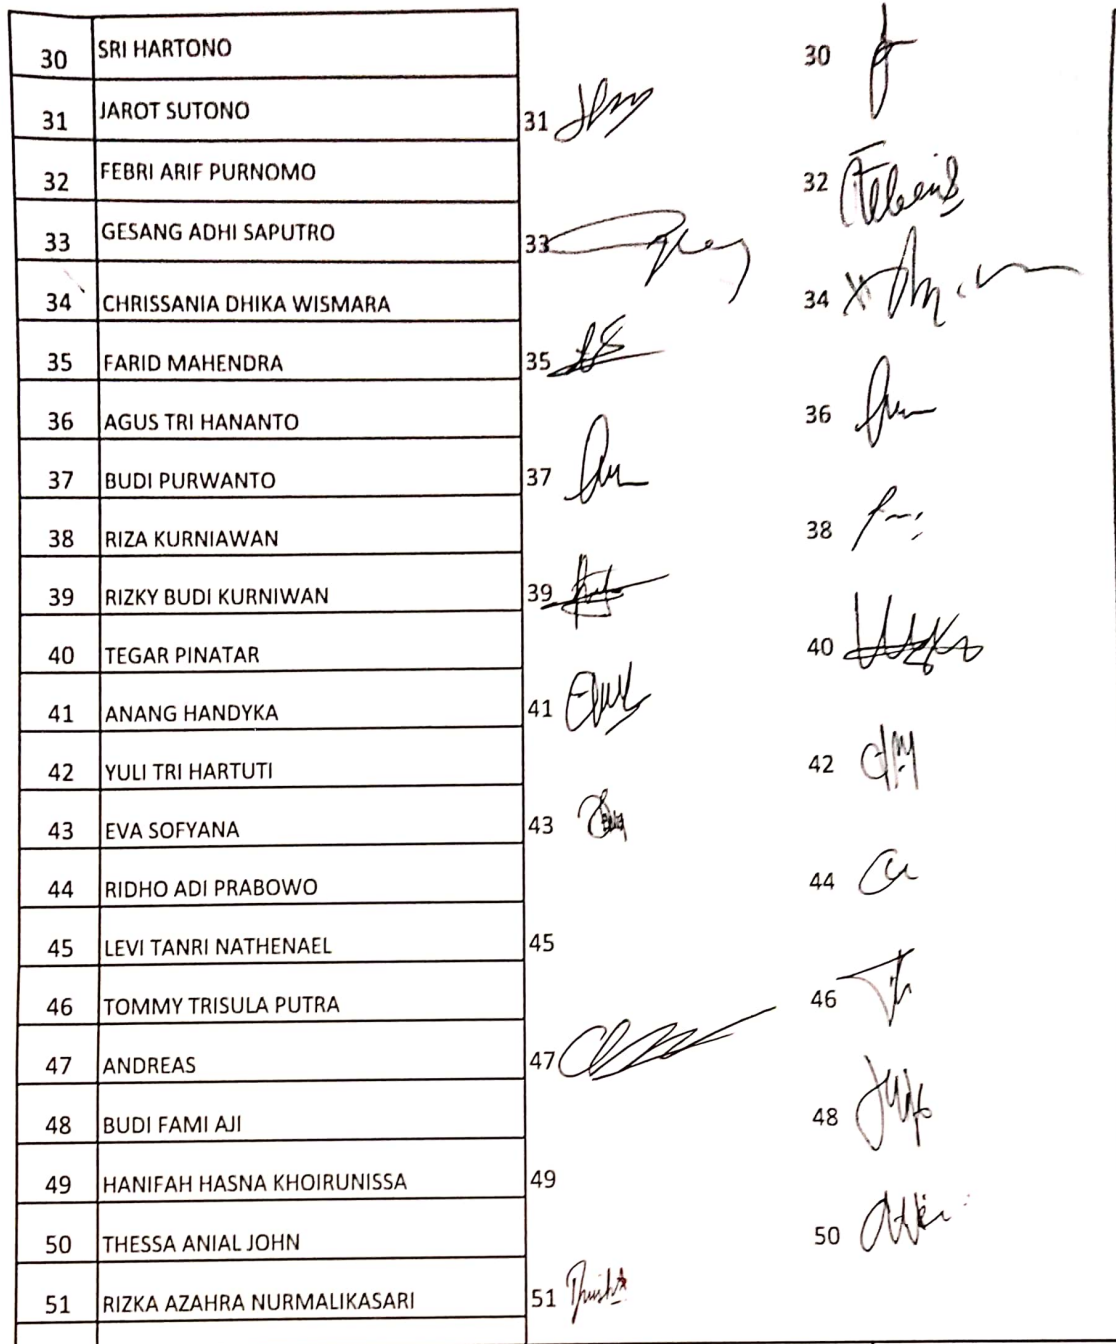 30 SRI HARTONO 30
31 JAROT SUTONO 31
32 FEBRI ARIF PURNOMO 32
33 GESANG ADHI SAPUTRO 33
34 CHRISSANIA DHIKA WISMARA 34
35 FARID MAHENDRA 35
36 AGUS TRI HANANTO 36
37 BUDI PURWANTO 37
38 RIZA KURNIAWAN 38
39 RIZKY BUDI KURNIWAN 39
40 TEGAR PINATAR 40
41 ANANG HANDYKA 41
42 YULI TRI HARTUTI 42
43 EVA SOFYANA 43
44 RIDHO ADI PRABOWO 44
45 LEVI TANRI NATHENAEL 45
46 TOMMY TRISULA PUTRA 46
47 ANDREAS 47
48 BUDI FAMI AJI 48
49 HANIFAH HASNA KHOIRUNISSA 49
50 THESSA ANIAL JOHN 50
51 RIZKA AZAHRA NURMALIKASARI 51